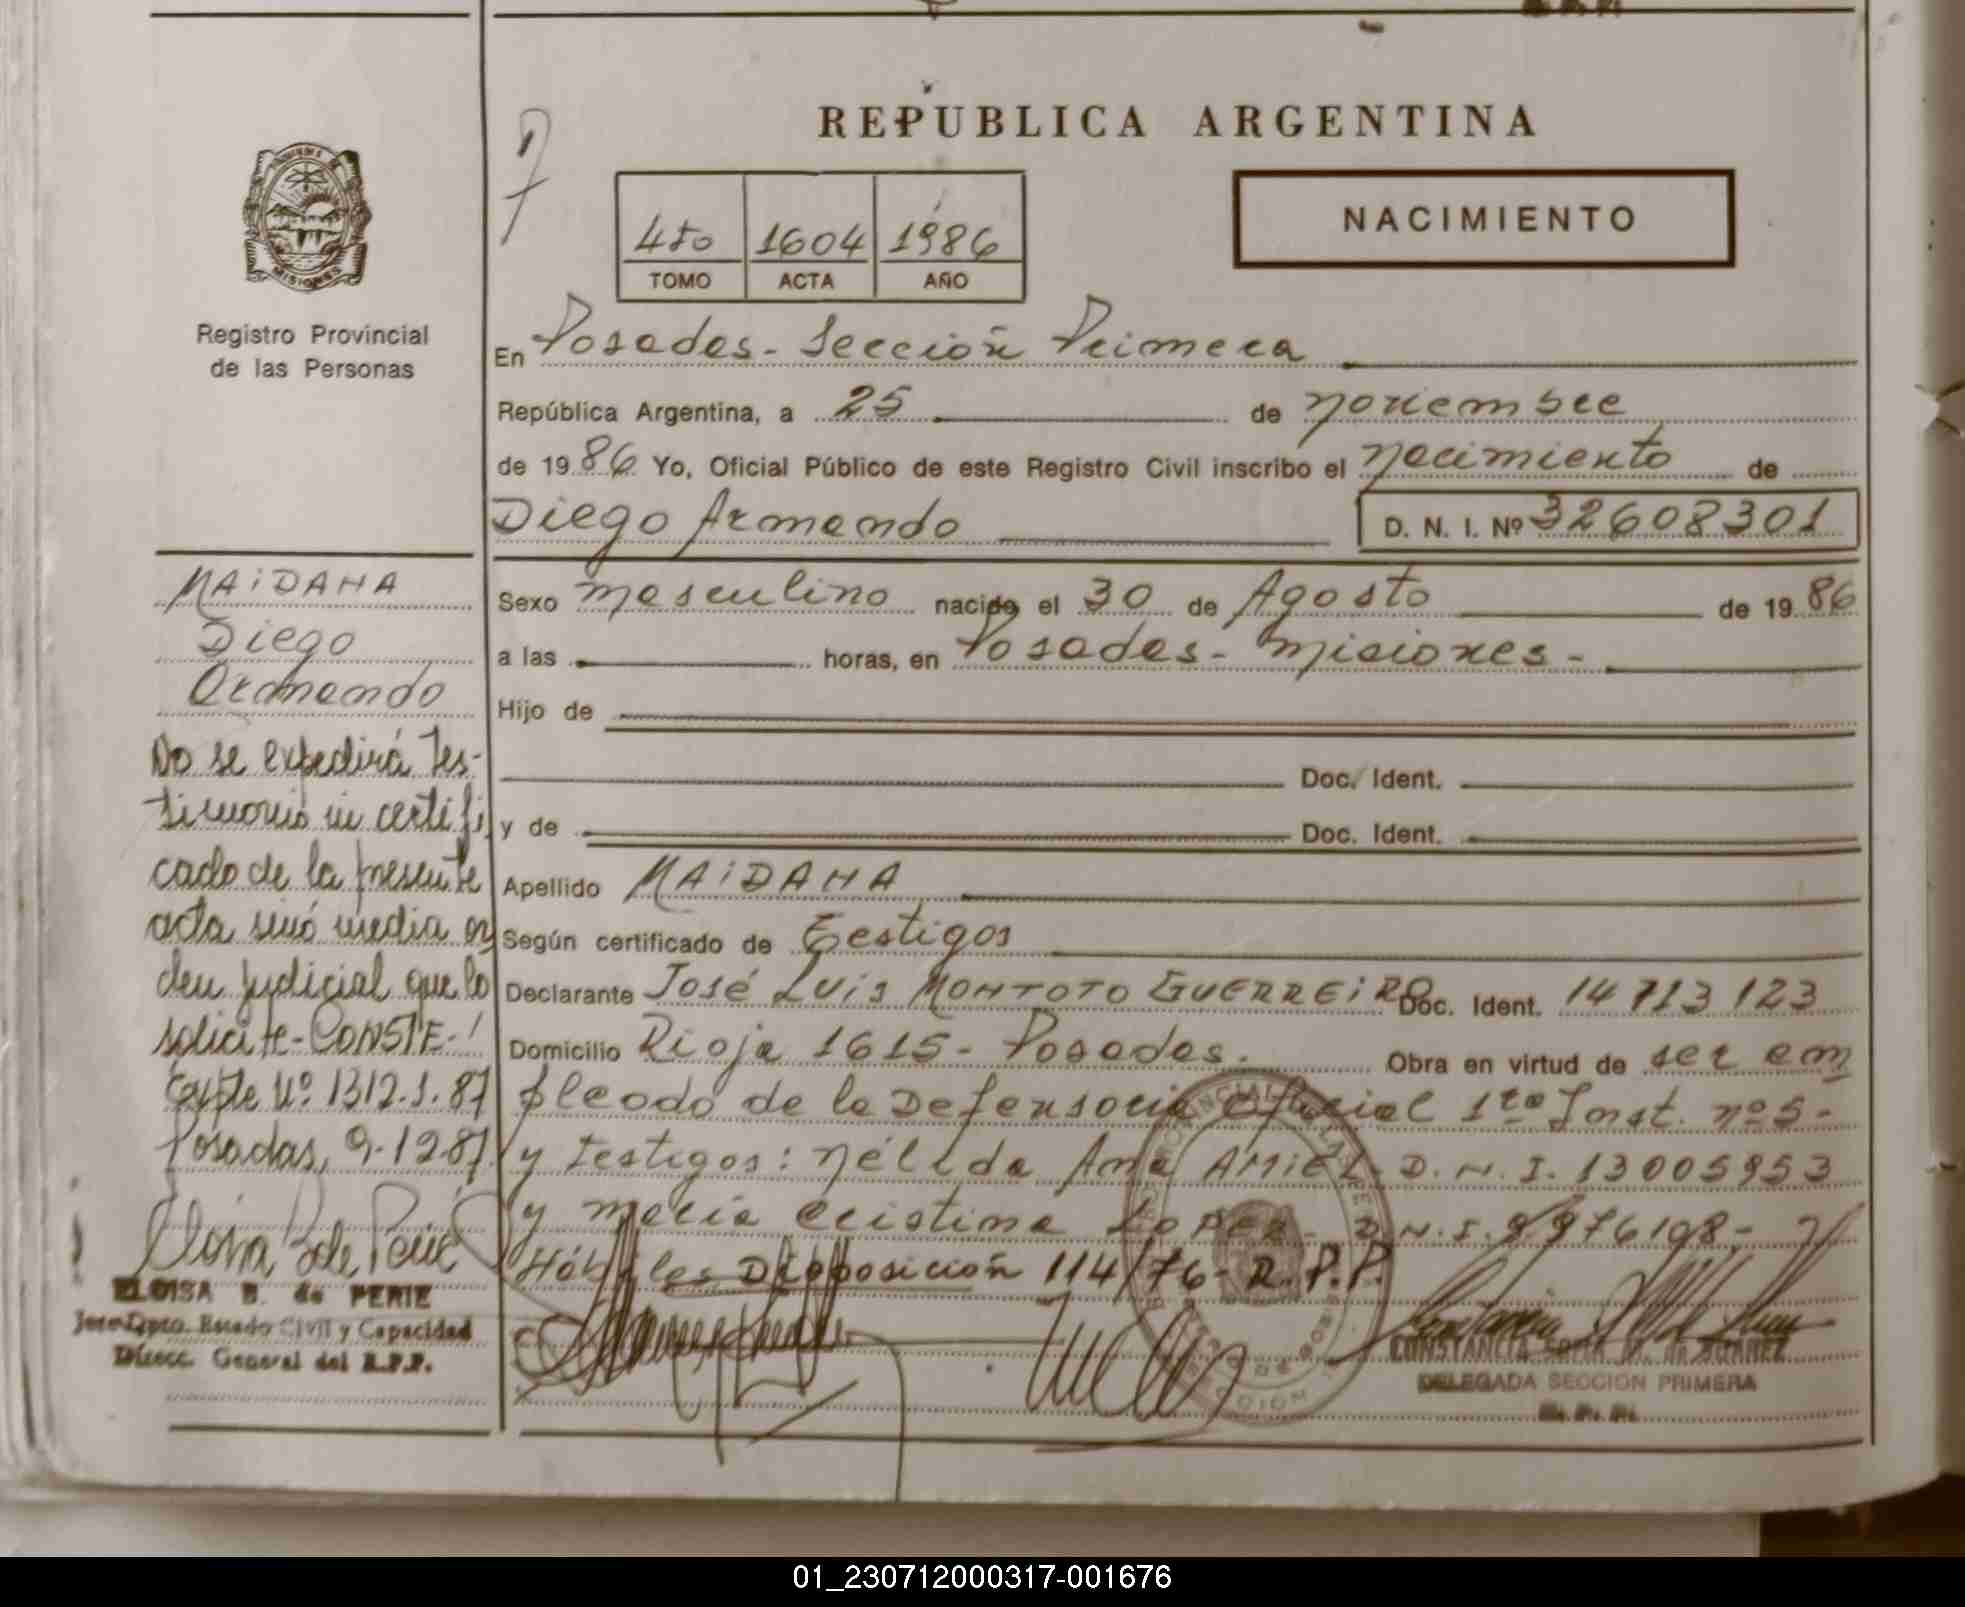 REPUBLICA ARGENTINA
NACIMIENTO
4to 1604 1986
TOMO ACTA AÑO
MISIONES
Registro Provincial
de las Personas
En Posadas - Sección Primera
República Argentina, a 25 de noviembre
de 1986 Yo, Oficial Público de este Registro Civil inscribo el nacimiento de
Diego Armando D. N. I. Nº 32608301
Sexo masculino nacido el 30 de Agosto de 1986
a las horas, en Posadas - Misiones -
Hijo de
Doc. Ident.
y de Doc. Ident.
Apellido MAiDANA
Según certificado de Testigos
Declarante José Luis MONTOTO GUERREiRO Doc. Ident. 14713123
Domicilio Rioja 1615 - Posadas. Obra en virtud de ser em
pleado de la Defensoria Oficial 1ra Inst. nº 5 -
y testigos: Nélida Ana AMiEL D.N.I. 13005953
y Maria Cristina LOPEZ - D.N.I. 9976198 -
Hábiles Disposición 114/76 - R.P.P.
CONSTANCIA M. de SUAREZ
DELEGADA SECCION PRIMERA
R. P. P.
MAiDANA
Diego
Armando
No se expedirá tes-
timonio ni certifi
cado de la presente
acta sinó media or
den judicial que lo
solicite - CONSTE - /
Expte Nº 1312.J.87
Posadas, 9-12-87.
Eloisa B de Perié
ELOISA B. de PERIE
Jefe Dpto. Estado Civil y Capacidad
Direcc. General del R.P.P.
01_230712000317-001676